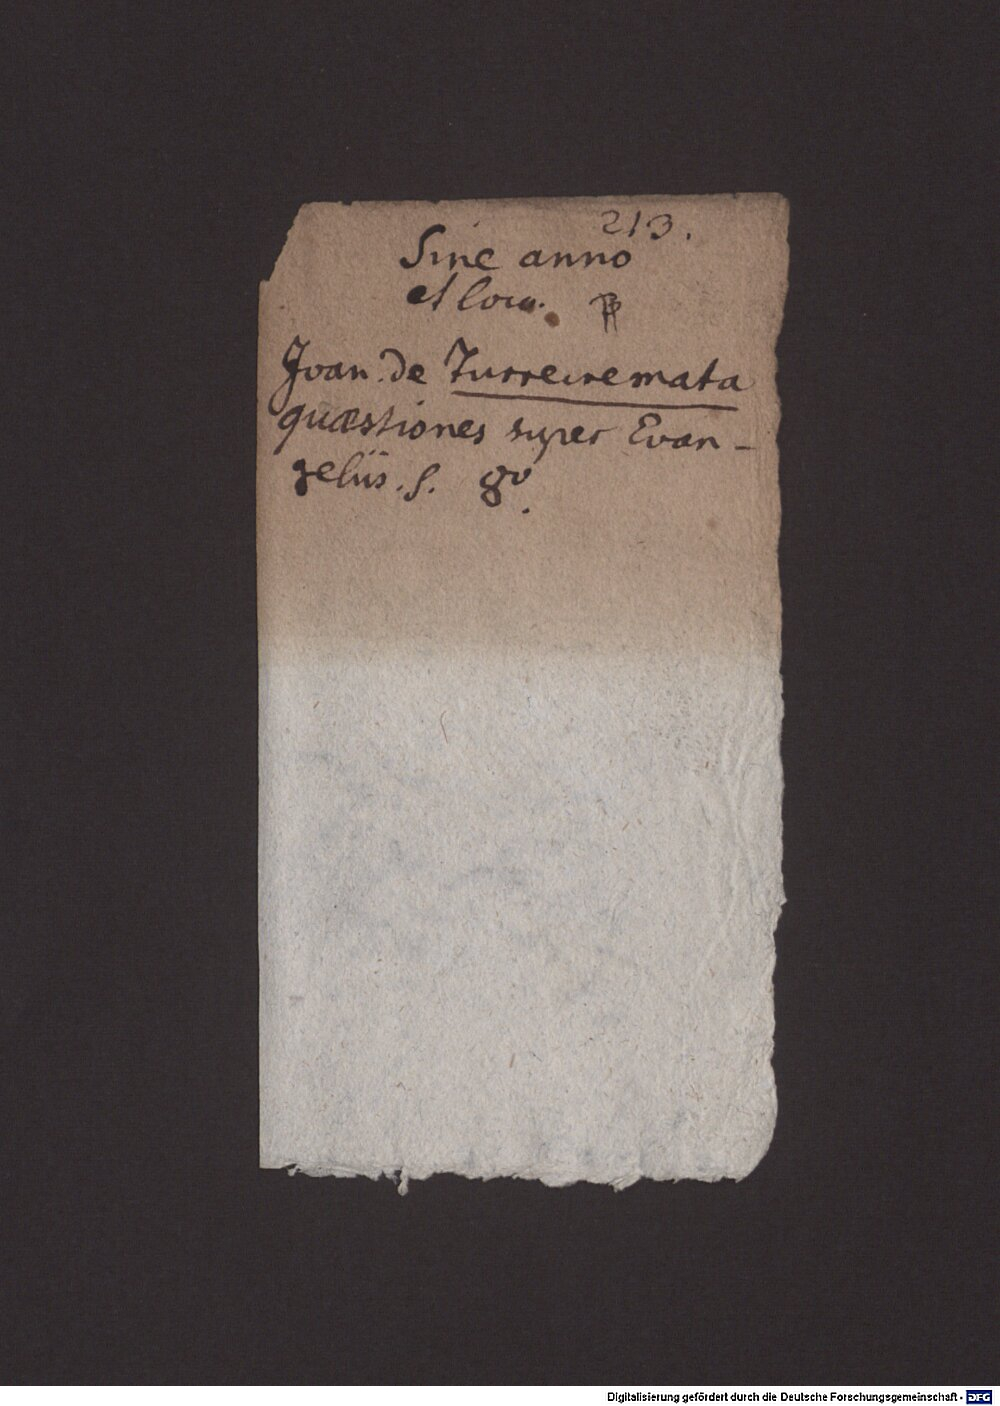 213.
Sine anno
et loco.
Joan. de Turrecremata
quæstiones super Evan-
geliis. f. 8º.
Digitalisierung gefördert durch die Deutsche Forschungsgemeinschaft - DFG